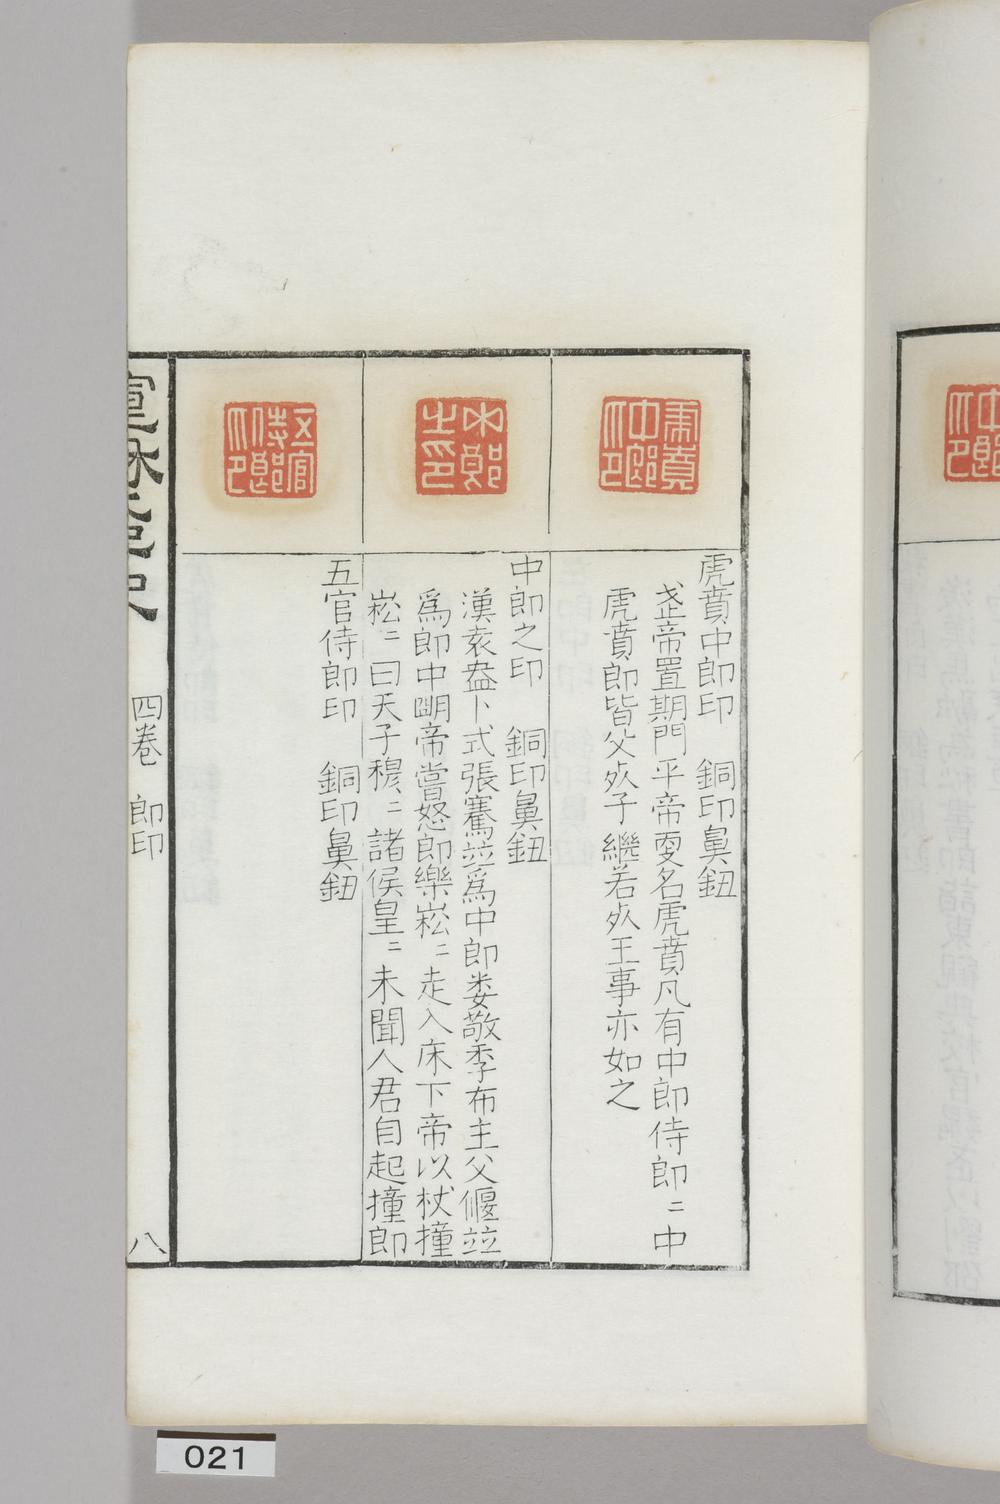 虎賁中郎印　銅印鼻鈕
武帝置期門平帝更名虎賁凡有中郎侍郎〻中
虎賁郎皆父歿子繼若歿王事亦如之
中郎之印　銅印鼻鈕
漢袁盎卜式張騫竝爲中郎婁敬季布主父偃竝
爲郎中明帝嘗怒郎樂崧〻走入床下帝以杖撞
崧〻曰天子穆〻諸侯皇〻未聞人君自起撞郎
五官侍郎印　銅印鼻鈕
虎賁中郎印
中郎之印
五官侍郎印
四卷　郎印
八
021